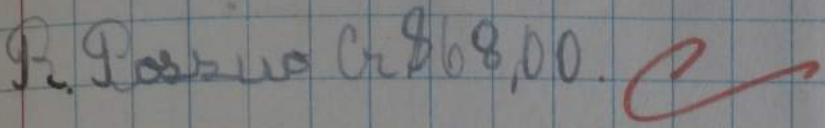 R. Possuo Cr$68,00.